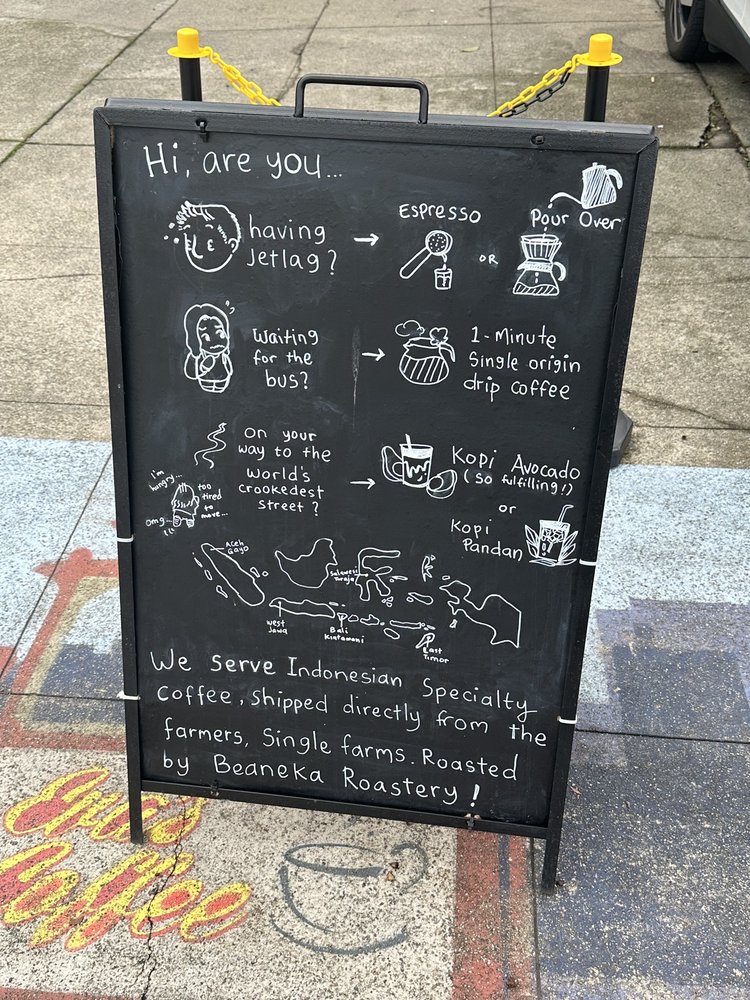 Hi, are you...
having
Jetlag?
Espresso
OR
Pour Over
Waiting
for the
bus?
1-Minute
Single origin
drip coffee
On your
way to the
world's
crookedest
street?
i'm
hungry...
too
tired
to
move...
omg...
Kopi Avocado
(So fulfilling!)
or
Kopi
Pandan
Aceh
Gayo
Sulawesi
Toraja
West
Jawa
Bali
Kintamani
East
Timor
We serve Indonesian Specialty
Coffee, shipped directly from the
farmers, Single farms. Roasted
by Beaneka Roastery!
Coffee